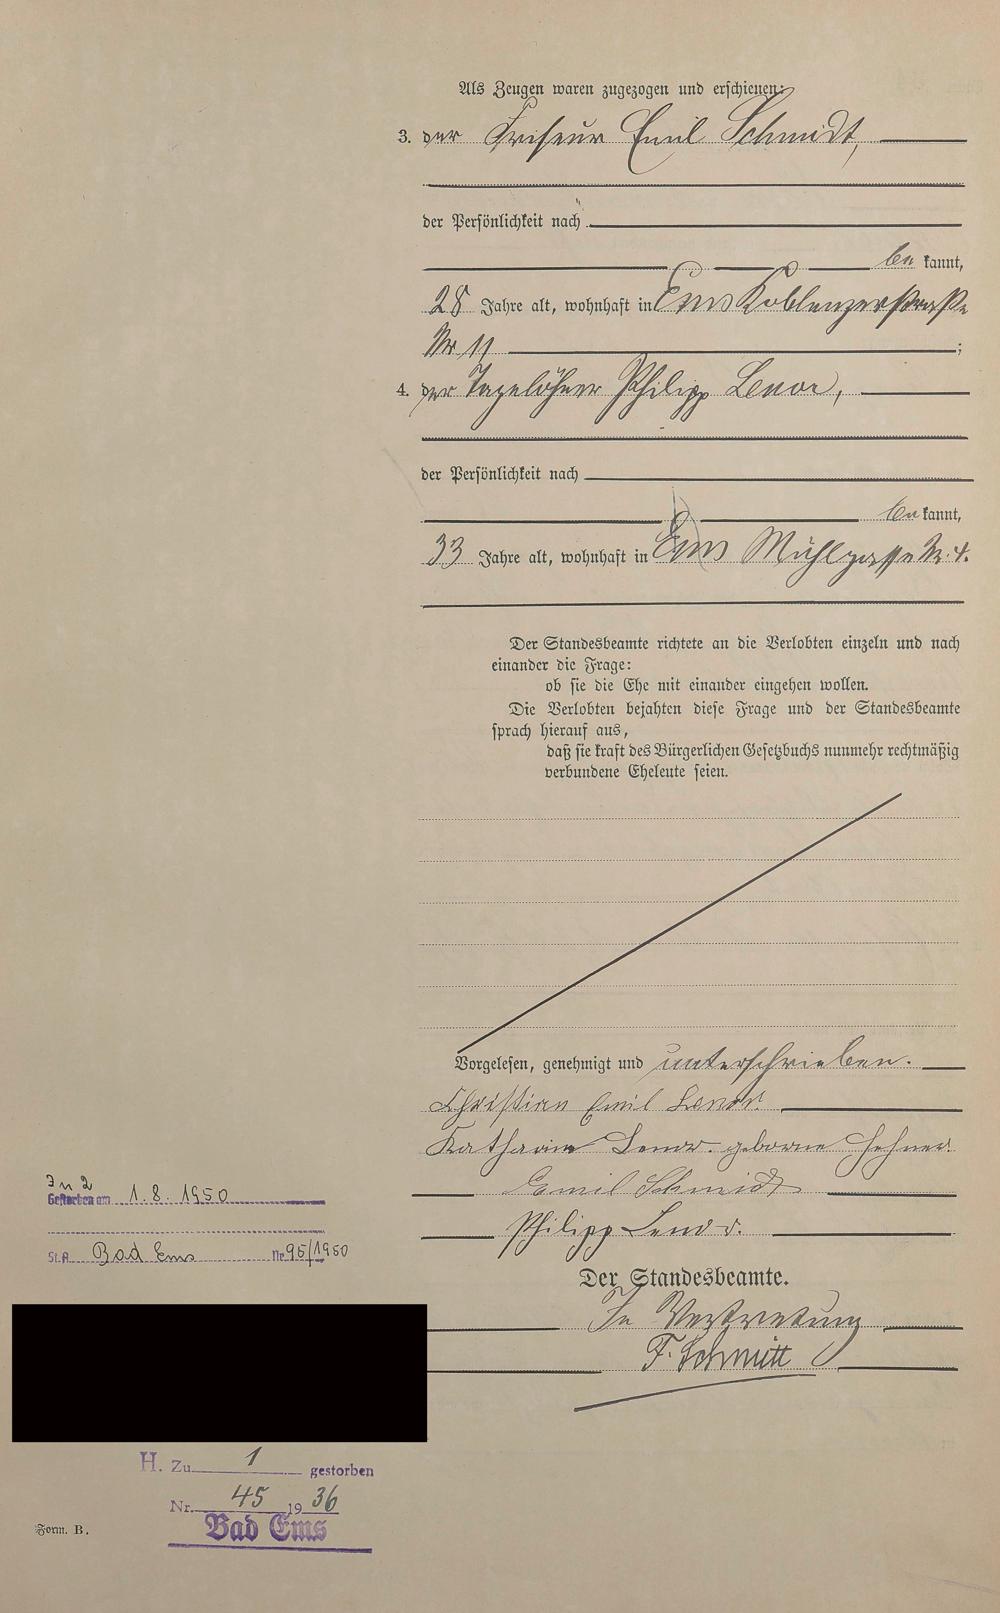 Als Zeugen waren zugezogen und erschienen:
3. der Friseur Emil Schmidt,
der Persönlichkeit nach
be kannt,
28 Jahre alt, wohnhaft in Ems Koblenzerstraße
Nr 11 ;
4. der Tagelöhner Philipp Lenor,
der Persönlichkeit nach
be kannt,
33 Jahre alt, wohnhaft in Ems Mühlgasse Nr. 4.
Der Standesbeamte richtete an die Verlobten einzeln und nach
einander die Frage:
ob sie die Ehe mit einander eingehen wollen.
Die Verlobten bejahten diese Frage und der Standesbeamte
sprach hierauf aus,
daß sie kraft des Bürgerlichen Gesetzbuchs nunmehr rechtmäßig
verbundene Eheleute seien.
Vorgelesen, genehmigt und unterschrieben.
Christian Emil Lenor.
Katharine Lenor. geborne Hehner.
Emil Schmidt
Philipp Lenor.
Der Standesbeamte.
In Vertretung
F. Schmitt
2
Gestorben am 1.8.1950
St.A. Bad Ems Nr. 95/1950
H. Zu 1 gestorben
Nr. 45 1936
Bad Ems
Form. B.